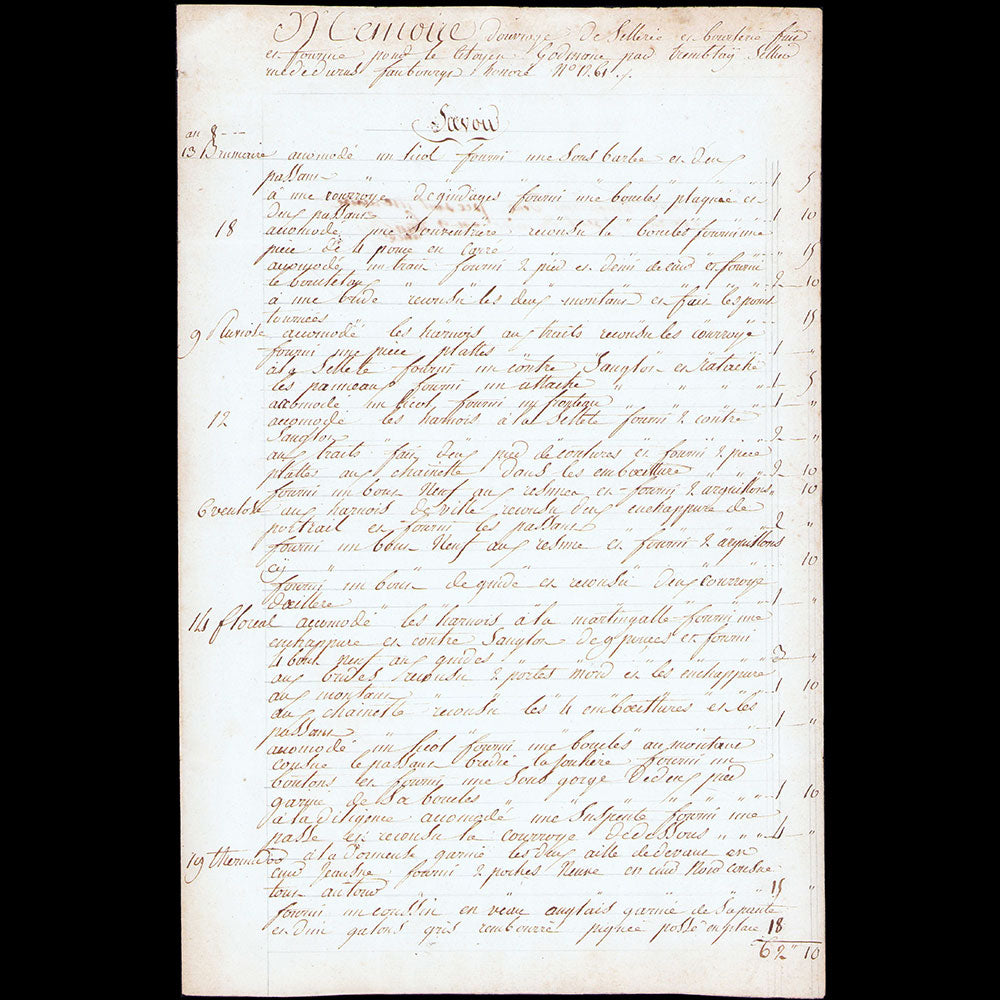 Memoire d'ouvrage de Sellerie et bourlerie fait
et fournie pour le Citoyen Godmone par tremblay Sellier
rue de durus faubourg honoré No 1261
Savoir
an 8
13 Brumaire acomodé un licol fourni une Sous barbe et deux
passant " " " " 1 5
à une courroye de guidages fourni une boucles plaquée et
deux passant 1 10
18 acomodé une Souventriere recousu la boucles fourni une
piece de 4 pouce en carré 15
acomodé un trait fourni 2 pied et demi de cuir et fourni
le bouleton " " " " " 2 10
à une bride recousu les deux montant et fait les point
tournées 15
9 Pluviose acomodé les harnois aux traits recousu les courroye
fourni une piece plattes 1 "
à la Sellete fourni un contre Sanglon et ratache
les panneaux fourni un attache " " " " 1 5
accomodé un licol fourni un fronteau " " " " 1 "
12 acomodé les harnois à la Sellete fourni 2 contre
Sanglon 2 "
aux traits fait deux pied de coutures et fourni 2 piece
plattes aux chainette dans les emboeitture " " " 2 10
fourni un bout Neuf aux resnes et fourni 2 arguillons " 10
6 ventose aux harnois de ville recousu deux enchappure de
poitrail et fourni les passant " " " 2 "
fourni un bout Neuf aux resne et fourni 2 arguillons
cy " " " " 10
fourni un bout de guide et recousu deux courroye
d'oeillere 1 "
14 floreal acomodé les harnois à la martingalle fourni une
enchappure et contre Sanglon de 9 pouces et fourni
4 bout neuf aux guides " " " " 3 "
aux brides recousu 2 portes mord et les enchappure
aux montant 1 10
aux chainette recousu les 4 emboeittures et les
passant 1 "
acomodé un licol fourni une boucles au montant
cousue le passant bredie la fouhere fourni un
boutons et fourni une Sous gorge de deux pied
garnie de Sa boucles " " " " " 1 10
à la diligence acomodé une Suspente fourni une
passe et recousu la courroye de dessous " " " 4 "
19 thermidor à la dormeuse garnie les deux aille de devant en
cuir Jeausne fourni 2 poches Neuve en cuir Noir cousue
tout autour 15 "
fourni un coussin en veau anglais garnie de Sa pante
et d'un galons gris rembourré piquée possé en place 18
62 " 10